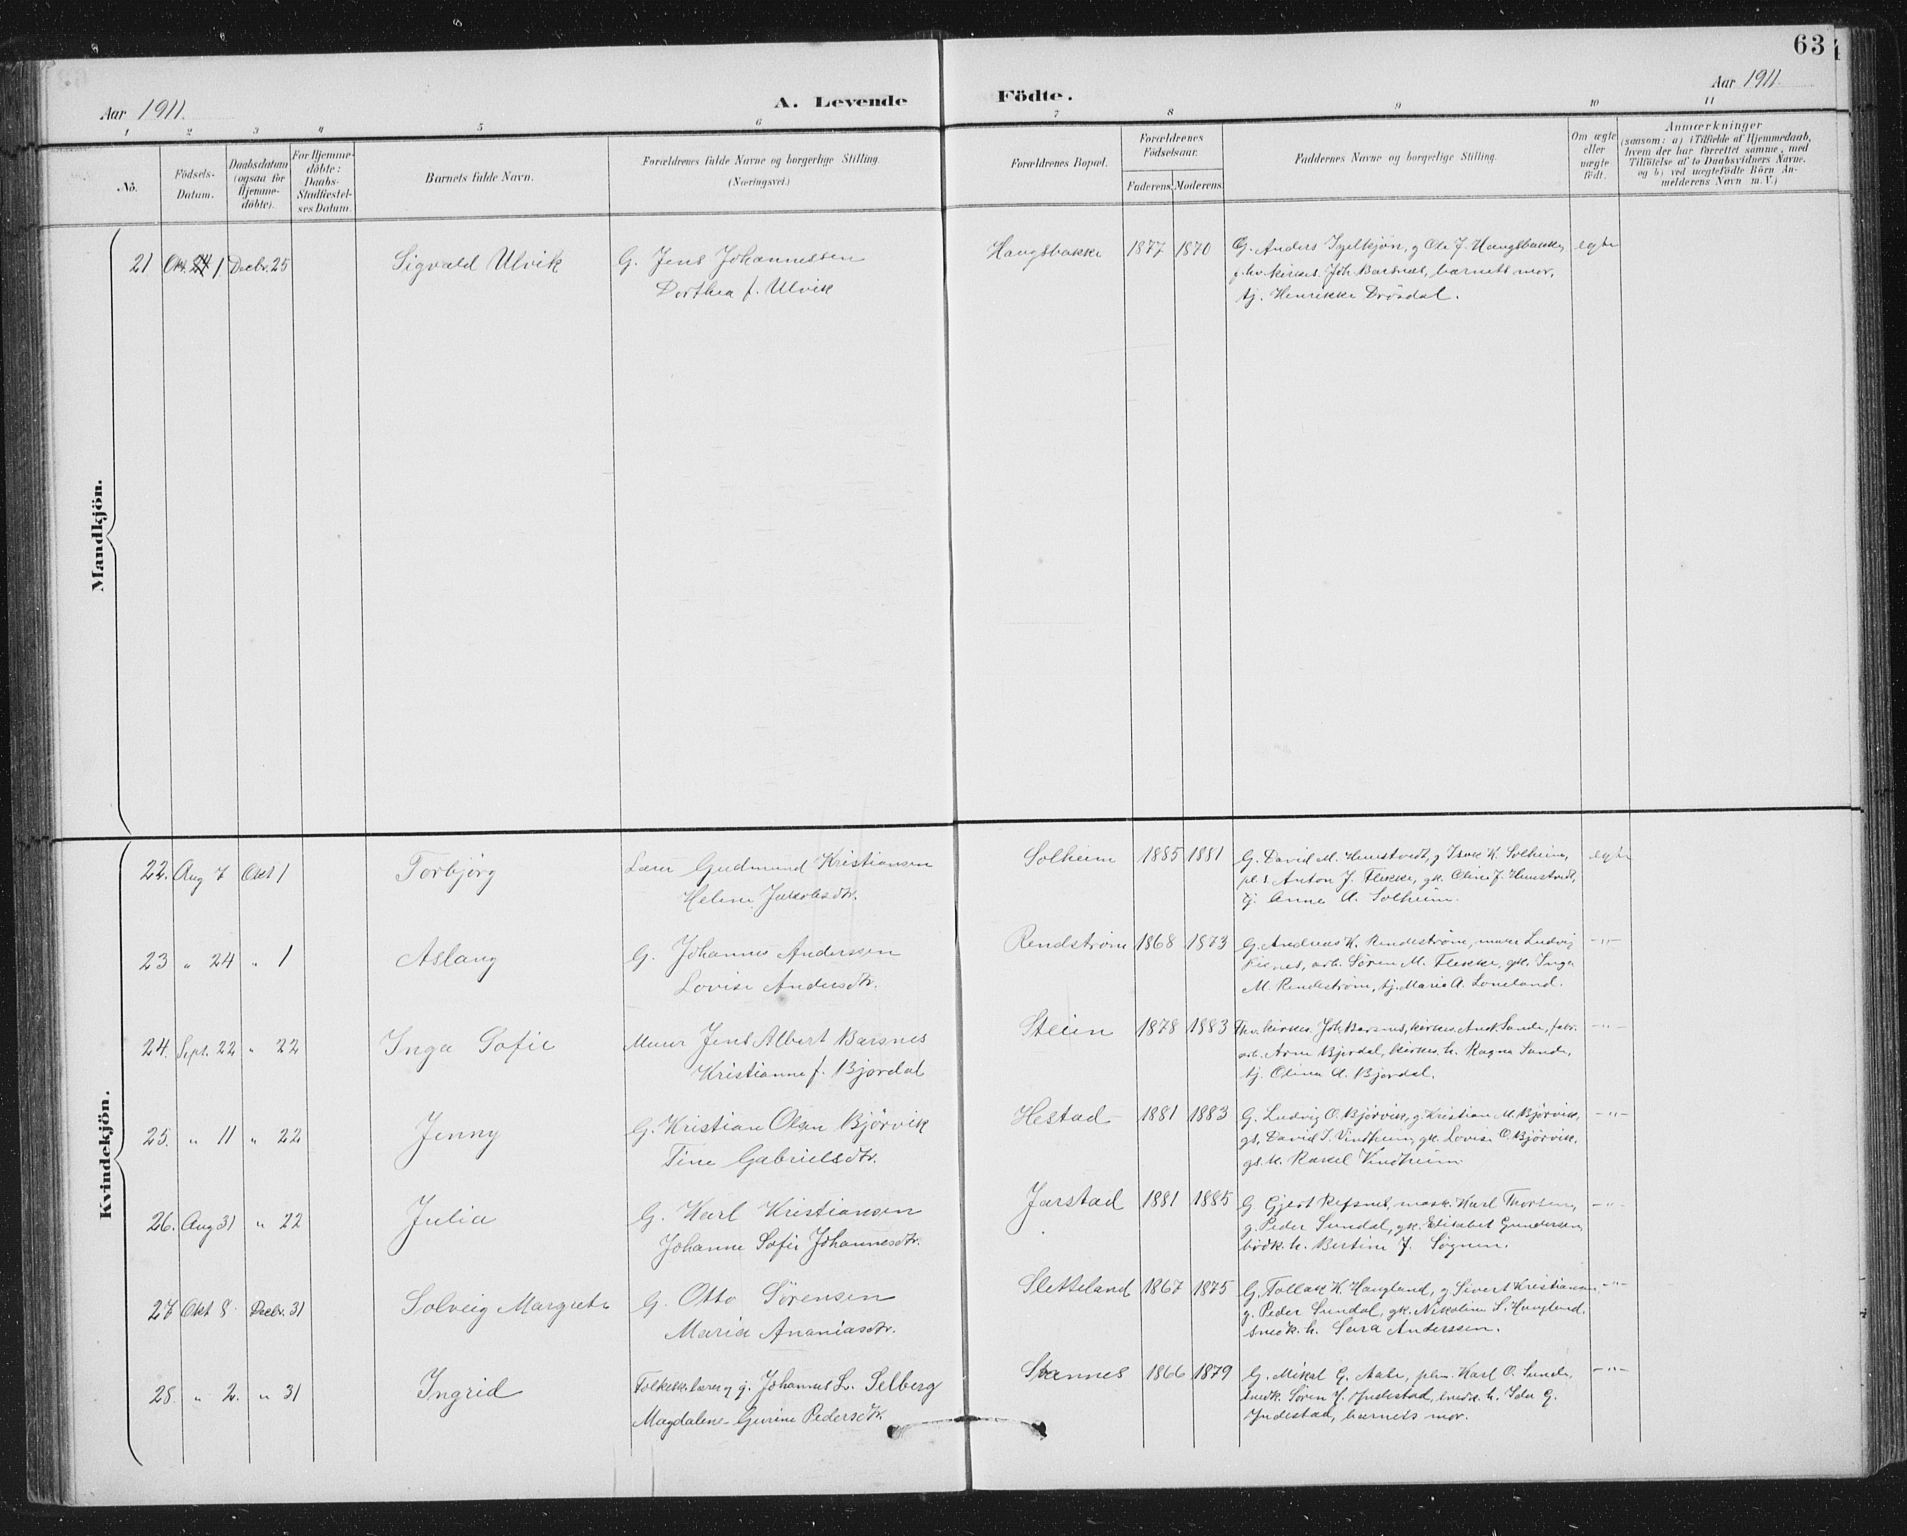 63
Aar 1911.
A. Levende Födte.
Aar 1911.
1 2 3 4 5 6 7 8 9 10 11
No.
Födsels-
Datum.
Daabsdatum
(ogsaa for
Hjemme-
döbte).
For Hjemme-
döbte:
Daabs-
Stadfæstel-
ses Datum
Barnets fulde Navn.
Forældrenes fulde Navne og borgerlige Stilling.
(Næringsvei.)
Forældrenes Bopæl.
Forældrenes
Födselsaar.
Faderens. Moderens.
Faddernes Navne og borgerlige Stilling.
Om ægte
eller
uægte
født.
Anmærkninger
(saasom: a) i Tilfælde af Hjemmedaab,
hvem der har forrettet samme, med
Tilföielse af to Daabsvidners Navne,
og b) ved uægtefödte Börn An-
melderens Navn m. V.)
Mandkjön.
21 Okt. 1 Decbr. 25 Sigvald Ulvik G. Jens Johannessen Haugsbakke 1877 1870 G. Anders Tyelkjøn, g Ole J. Haugsbakke, egte
Dorthea f. Ulvik f.hv. kirkes. Joh. Barsnes, barnets mor,
tj. Henrikke Drøsdal.
Kvindekjön.
22. Aug 7 Okt 1 Torbjørg Gudmund Kristiansen Solheim 1885 1881 G. David M. Humstvedt, g Isak K. Solheim, egte
Helene Jakobsdtr. Anton J. Flekke, gk. Oline J. Humstvedt,
tj. Anne A. Solheim.
23 " 24 " 1 Aslaug G. Johannes Anderssen Rendstrøm 1868 1873 G. Andreas K. Rendestrøm, murer Ludvig -"-
Lovise Andersdtr. arb. Søren M. Flekke, gk. Inga
M. Rendestrøm, tj. Maria A. Loneland.
24. Sept. 22 " 22 Inga Sofie Murer Jens Albert Barsnes Steien 1878 1883 Fhv. kirkes. Joh. Barsnes, kirkes. And. Sande, fabr. -"-
Kristianne f. Bjørdal arb. Arne Bjørdal, kirkes. h. Ragna Sande,
tj. Olina A. Bjørdal.
25. " 11 " 22 Jenny G. Kristian Olsen Bjørvik Hestad 1881 1883 G. Ludvig O. Bjørvik, g Kristian M. Bjørvik, -"-
Tine Gabrielsdtr. gs. David I. Vindheim, gk. Lovise O. Bjørvik,
gs. k. Rakel Vindheim
26. Aug 31 " 22 Julia G. Karl Kristiansen Jarstad 1881 1885 G Gjert Refsnes, mask. Karl Thorsen, -"-
Johanne Sofie Johannesdtr. g. Peder Sundal, gk. Elisabet Gundersen,
bødk. h. Bertine J. Søgnen.
27 Okt 8 Decbr. 31 Solveig Margrete G. Otto Sørensen Sletteland 1867 1875 G. Tollak K. Haugland, g Sivert Kristiansen -"-
Maria Ananiasdtr. g. Peder Sundal, gk. Nikoline S. Haugland,
snedk. h. Sara Anderssen.
28. " 2. " 31 Ingrid Folkesk.lærer og g. Johannes L. Selberg Stannes 1866 1879 G. Mikal G. Aase, Karl O. Sunde, -"-
Magdalene Gurine Pedersdtr. snedk. Søren J. Yndestad, snedk. h. Ida G.
Yndestad, barnets mor.